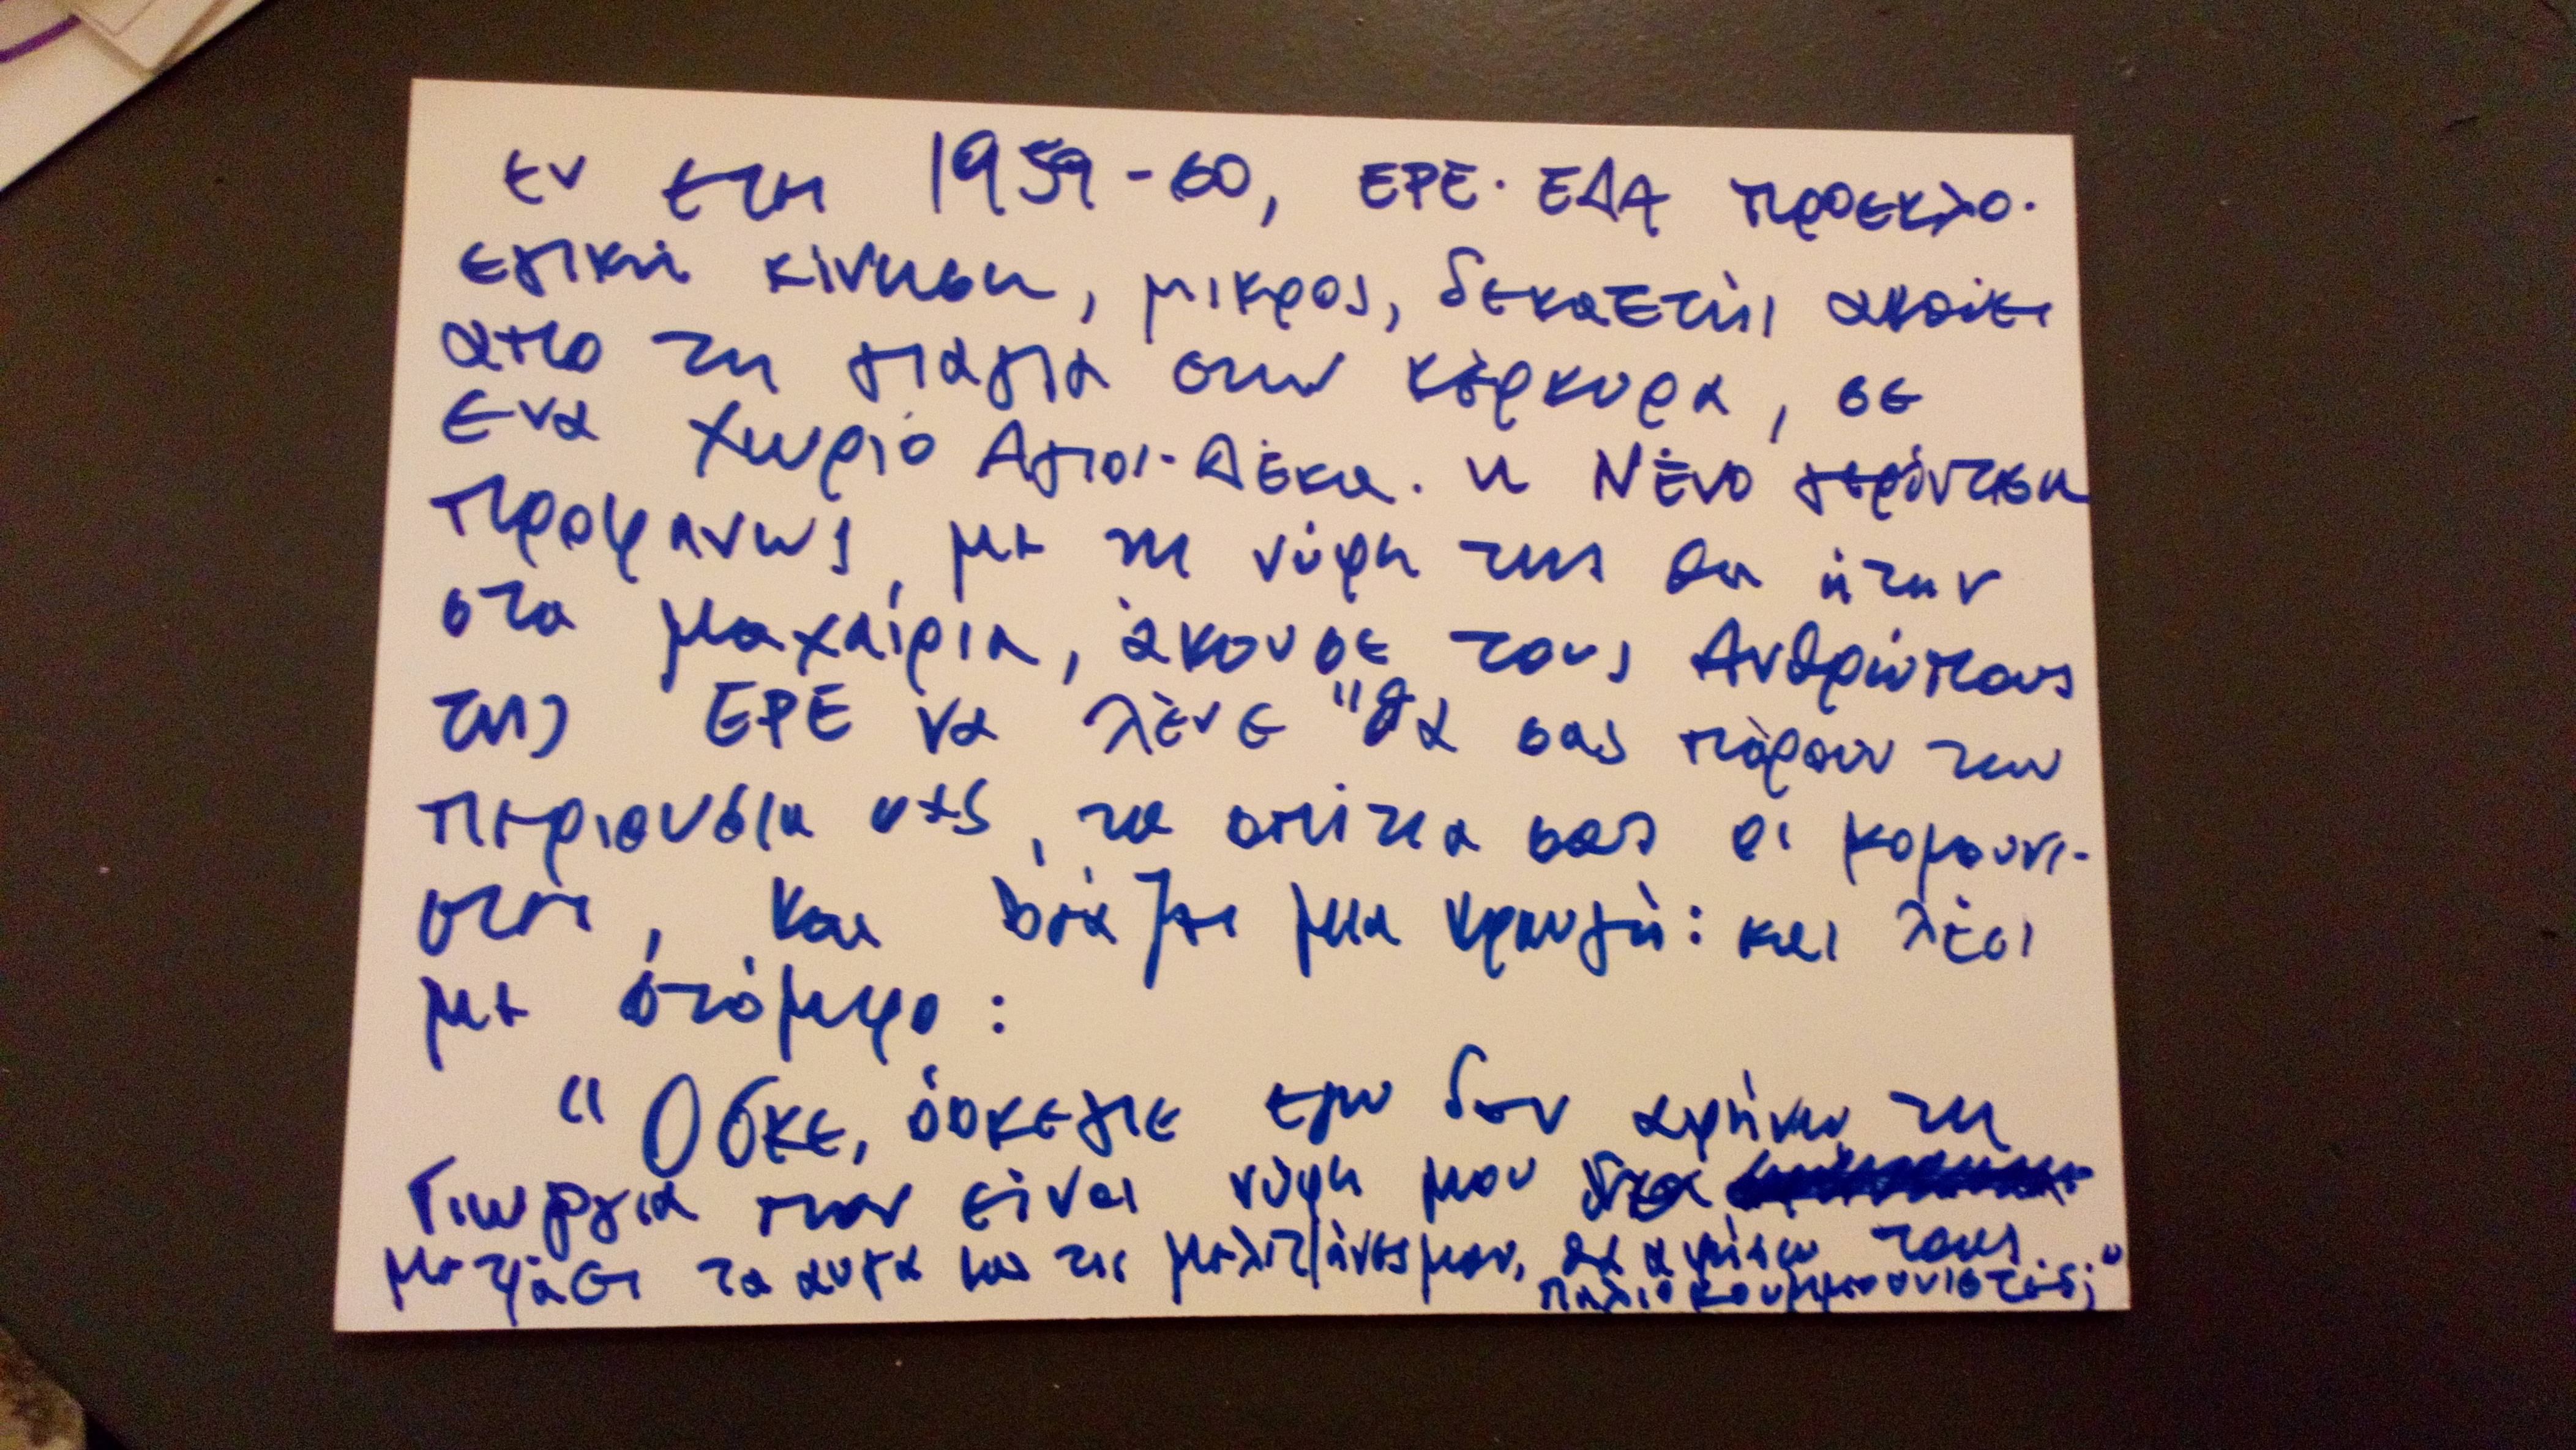 εν ετη 1959-60, ΕΡΕ. ΕΔΑ προεκλο-
εγική κίνηση, μικρος, δεκαετής ακούει
απο τη γιαγια στην κέρκυρα, σε
ενα χωριό Αγιοι-Δέκα. η Νένο γερόντισα
προφανως, με τη νύφη της θα ήταν
στα μαχαίρια, άκουσε τους Ανθρώπους
της ΕΡΕ να λένε "θα σας πάρουν την
περιουσία σας, τα σπίτια σας οι κομουνι-
στές, και βγάζει μια κραυγή: και λέει
με στόμφο:
"Οσκε, όσκεγιε εγω δεν αφήνω τη
Γιωργια που είναι νύφη μου
με τα αυγα και τις μελιτζάνες μου, θα αφήσω τους
παλιοκουμμουνιστές;"